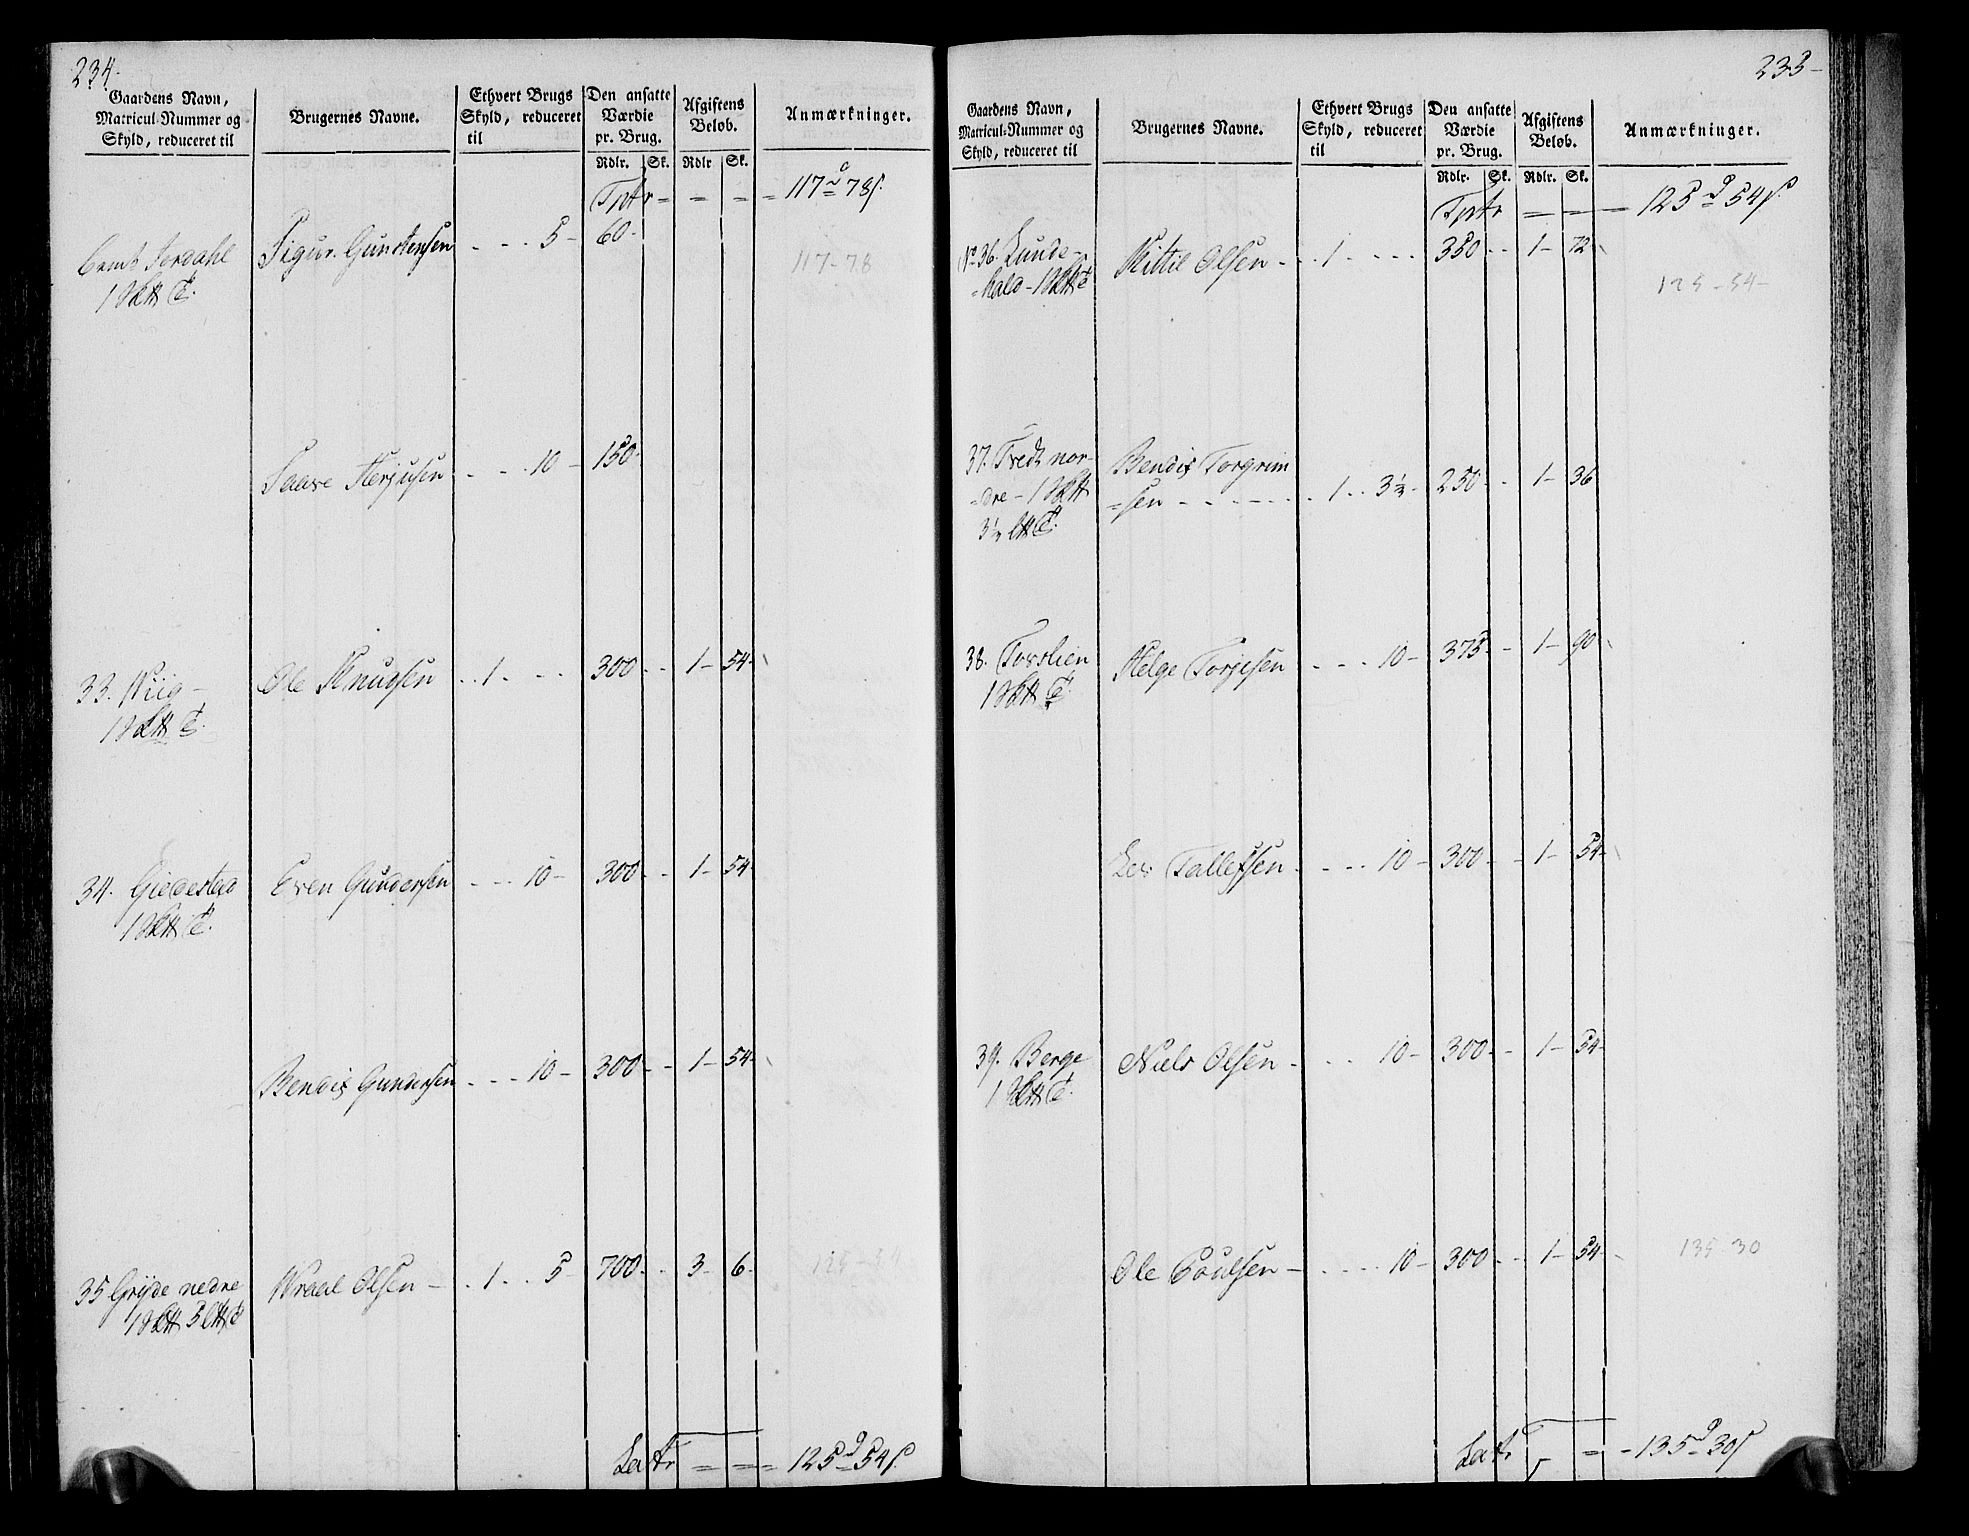 234.
Gaardens Navn,
Matricul-Nummer og
Skyld, reduceret til
Brugernes Navne.
Ethvert Brugs
Skyld, reduceret
til
Den ansatte
Værdie
pr. Brug.
Afgiftens
Beløb.
Anmærkninger.
Rdlr. Sk. Rdlr Sk.
Tptr = = = = 117 78
Jordahl Sigur Gunstensen - - - 5 - 60 -
1
117-78
Saave Herjusen - - - 10 - 150 -
33. Wiig - Ole Knudsen . . 1 . - - 300 - - 1 - 54 -
1
34. Giedestad Even Gundersen - - - 10 - 300 - - 1 - 54 -
1
Bendix Gundersen - - - 10 - 300 - - 1 - 54 -
35 Gryde nedre Wraal Olsen - . . 1 . . 5 - 700 - - 3 - 6 -
1 5
125-54
Latr = = = 125 54
233 -
Gaardens Navn,
Matricul-Nummer og
Skyld, reduceret til
Brugernes Navne.
Ethvert Brugs
Skyld, reduceret
til
Den ansatte
Værdie
pr. Brug.
Afgiftens
Beløb.
Anmærkninger.
Rdlr. Sk. Rdlr. Sk.
Tptr = = = 125 54
No 36. Lunde- Kittil Olsen - - . 1 . - - - 350 - - 1 - 72
=hald - 1
125-54-
37. Tredt nor- Bendix Torgrim
=dre - 1 =sen - - - - - . 1 . . 3½ - 250 - - 1 - 36
3½
38. Torslien Helge Torjesen - - - 10 - 375 - - 1 - 90
1
Lev Tallefsen - - - 10 - 300 - - 1 - 54 -
39. Berge Niels Olsen - - - 10 - 300 - - 1 - 54 -
1
Ole Poulsen - - - - 10 - 300 - - 1 - 54 -
135-30
Latr = - 135 30